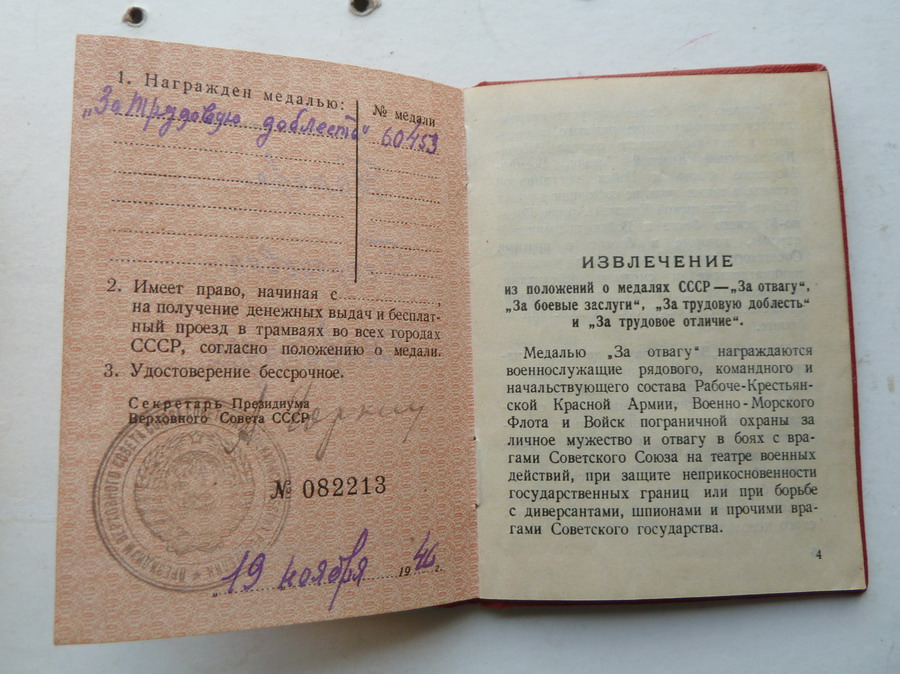 1. Награжден медалью:
№ медали
„За трудовую доблесть“
60453
2. Имеет право, начиная с
на получение денежных выдач и бесплат-
ный проезд в трамваях во всех городах
СССР, согласно положению о медали.
3. Удостоверение бессрочное.
Секретарь Президиума
Верховного Совета СССР
№ 082213
„19 ноября 1946 г.
ИЗВЛЕЧЕНИЕ
из положений о медалях СССР—„За отвагу“,
„За боевые заслуги“, „За трудовую доблесть“
и „За трудовое отличие“.
Медалью „За отвагу“ награждаются
военнослужащие рядового, командного и
начальствующего состава Рабоче-Крестьян-
ской Красной Армии, Военно-Морского
Флота и Войск пограничной охраны за
личное мужество и отвагу в боях с вра-
гами Советского Союза на театре военных
действий, при защите неприкосновенности
государственных границ или при борьбе
с диверсантами, шпионами и прочими вра-
гами Советского государства.
4